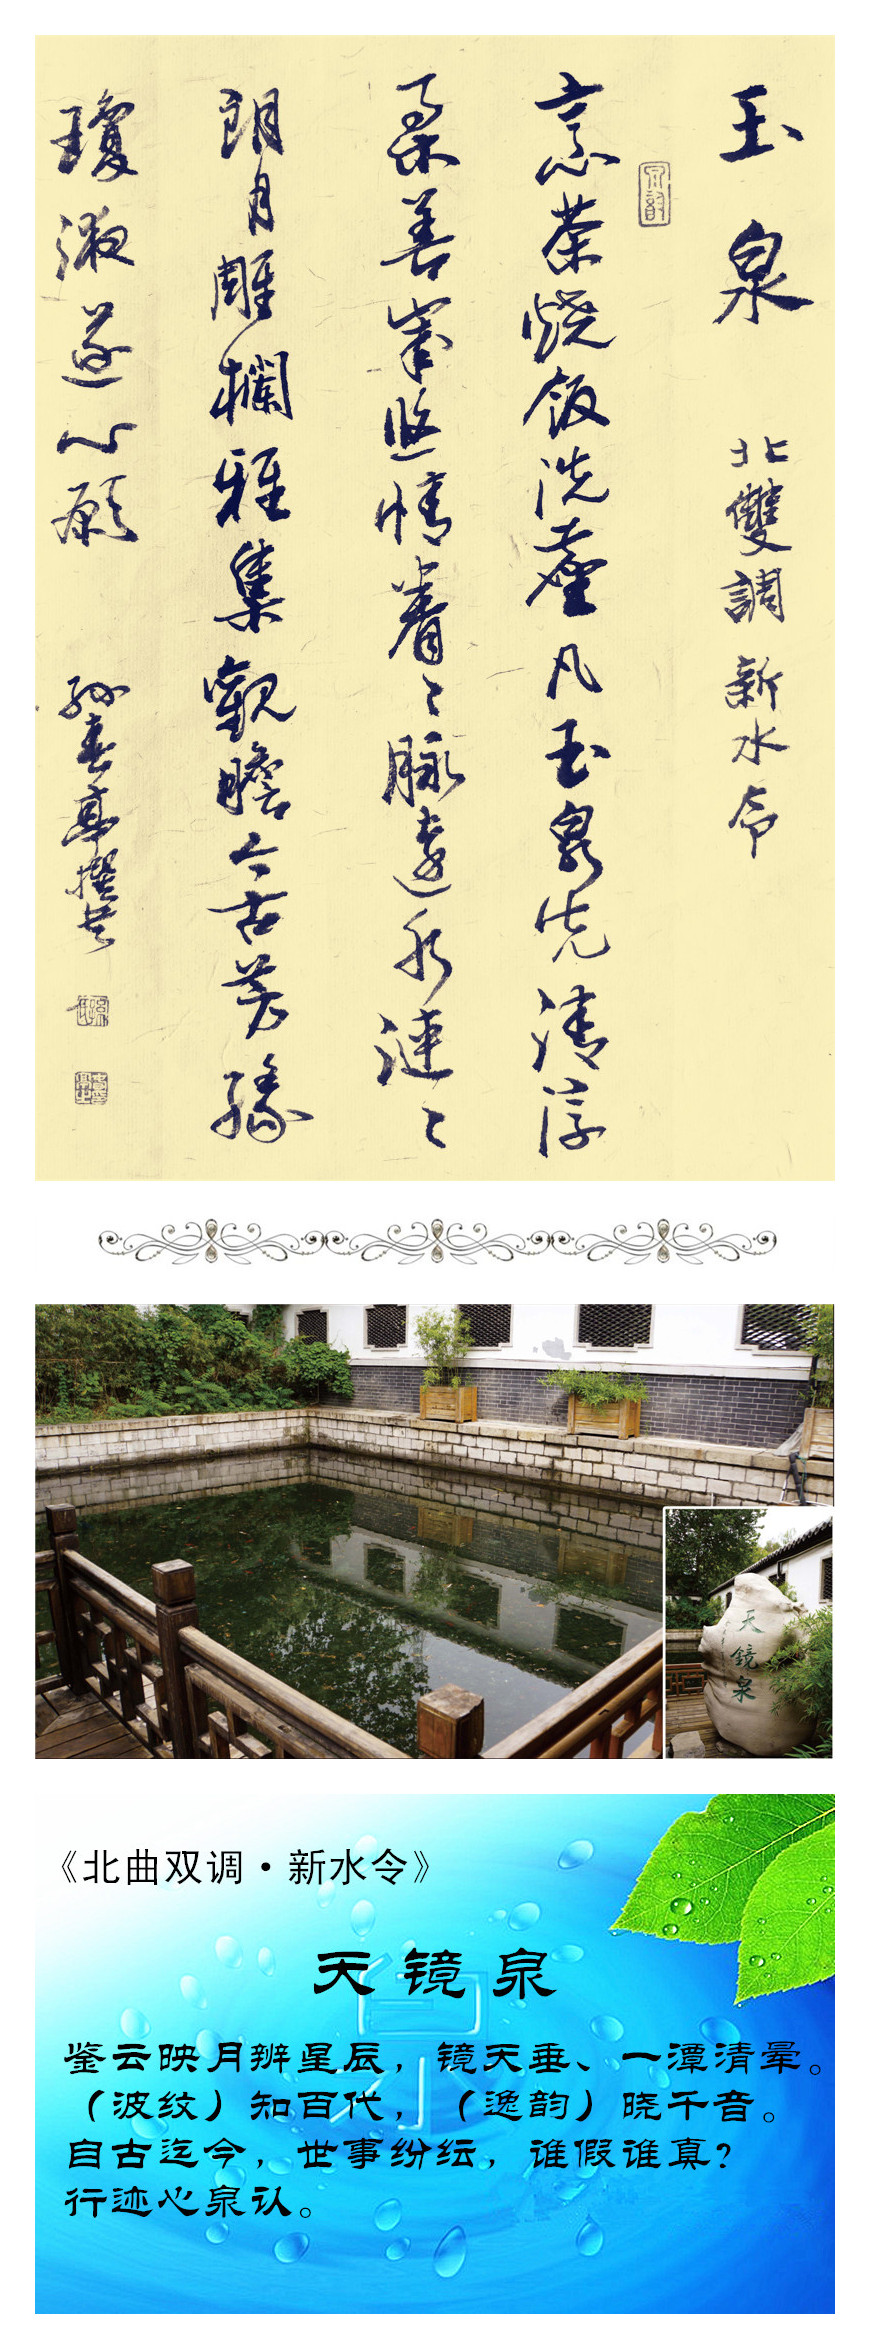 玉泉 北雙調 新水令
烹茶燒飯洗塵凡玉泉先清淳
柔善崇 情眷〻脉遠永漣〻
朗月雕欄雅集觀瞻今古美緣
瓊液遂心願
孫春亭撰書
天鏡泉
《北曲双调·新水令》
天镜泉
鉴云映月辨星辰，镜天垂、一潭清晕。
（波纹）知百代，（逸韵）晓千音。
自古迄今，世事纷纭，谁假谁真？
行迹心泉认。